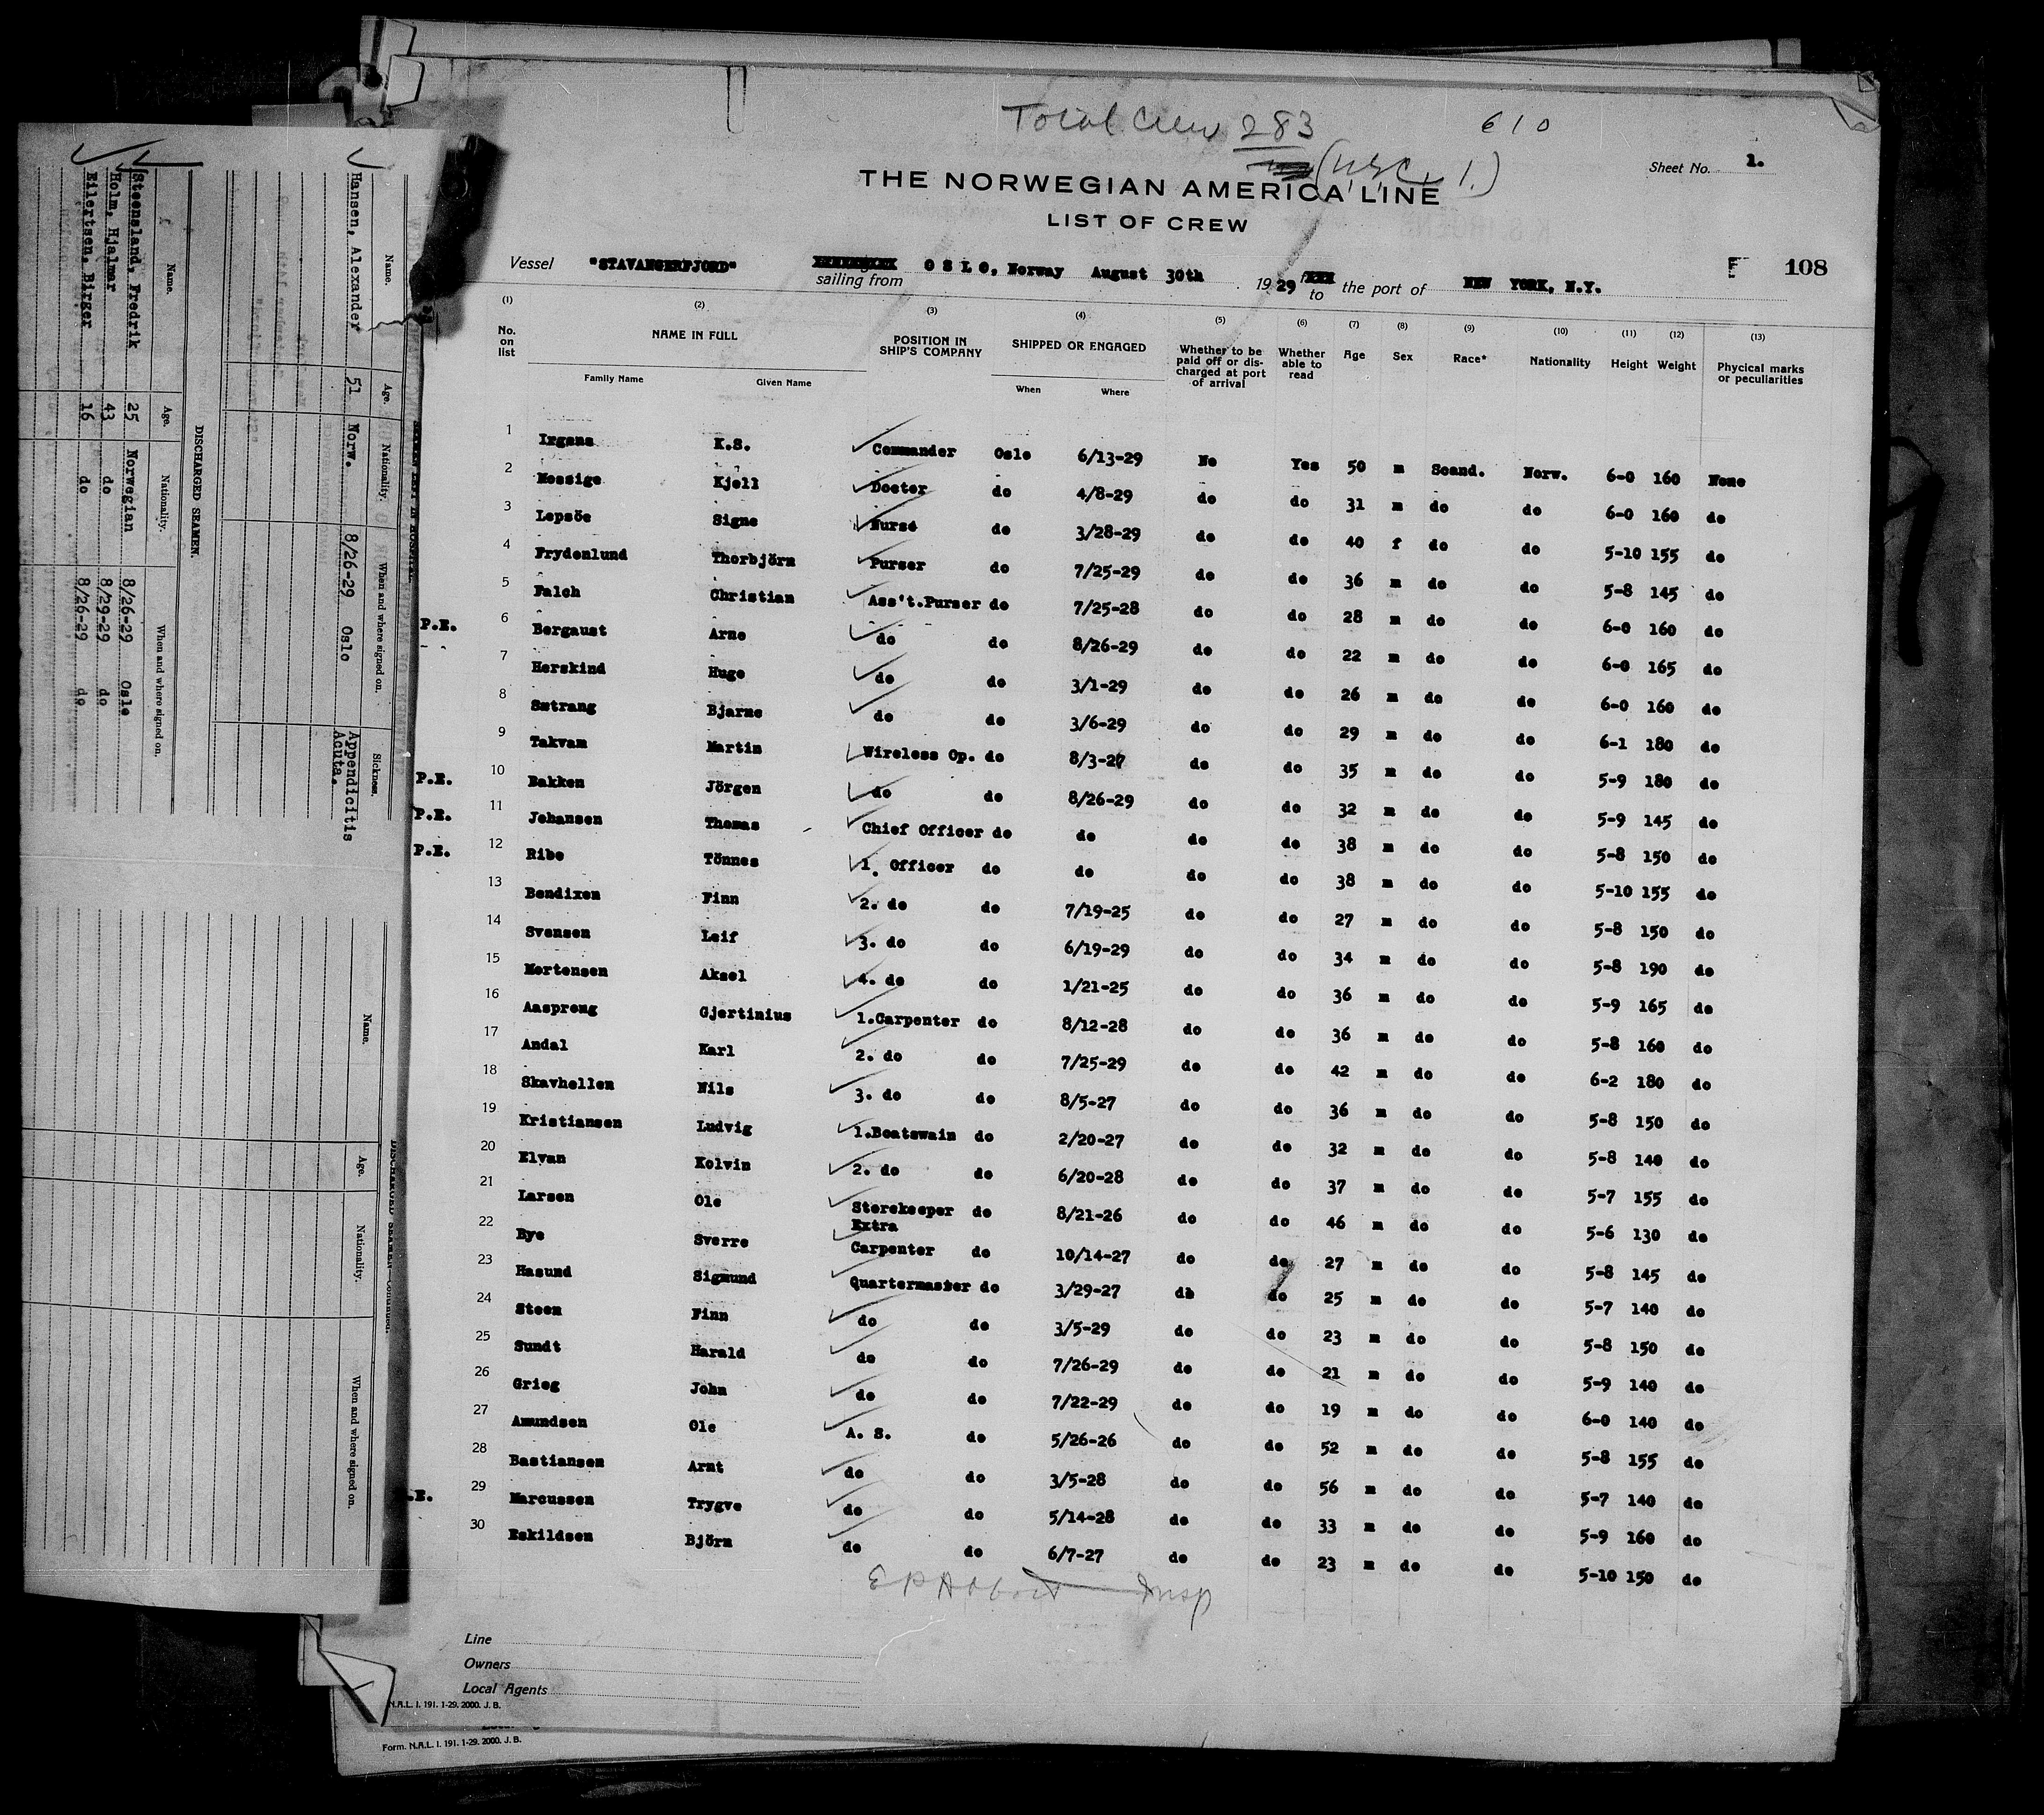 Total Crew 283
610
(U.S.C. 1.)
Sheet No. 1.
THE NORWEGIAN AMERICA LINE
LIST OF CREW
Vessel "STAVANGERFJORD" sailing from OSLO, Norway August 30th 1929 to the port of NEW YORK, N.Y.
108
(1) (2) (3) (4) (5) (6) (7) (8) (9) (10) (11) (12) (13)
No. on list NAME IN FULL POSITION IN SHIP'S COMPANY SHIPPED OR ENGAGED Whether to be paid off or discharged at port of arrival Whether able to read Age Sex Race* Nationality Height Weight Phycical marks or peculiarities
Family Name Given Name When Where
1 Irgens K.S. Commander Oslo 6/13-29 No Yes 50 m Scand. Norw. 6-0 160 None
2 Messige Kjell Doctor do 4/8-29 do do 31 m do do 6-0 160 do
3 Lepsöe Signe Nurse do 3/28-29 do do 40 f do do 5-10 155 do
4 Frydenlund Thorbjörn Purser do 7/25-29 do do 36 m do do 5-8 145 do
5 Falch Christian Ass't.Purser do 7/25-28 do do 28 m do do 6-0 160 do
P.E. 6 Bergaust Arne do do 8/26-29 do do 22 m do do 6-0 165 do
7 Herskind Hugo do do 3/1-29 do do 26 m do do 6-0 160 do
8 Sætrang Bjarne do do 3/6-29 do do 29 m do do 6-1 180 do
9 Takvam Martin Wireless Op. do 8/3-27 do do 35 m do do 5-9 180 do
P.E. 10 Bakken Jörgen do do 8/26-29 do do 32 m do do 5-9 145 do
P.E. 11 Johansen Thomas Chief Officer do do do do 38 m do do 5-8 150 do
P.E. 12 Ribe Tönnes 1. Officer do do do do 38 m do do 5-10 155 do
13 Bendixen Finn 2. do do 7/19-25 do do 27 m do do 5-8 150 do
14 Svensen Leif 3. do do 6/19-29 do do 34 m do do 5-8 190 do
15 Mortensen Aksel 4. do do 1/21-25 do do 36 m do do 5-9 165 do
16 Aaspreng Gjertinius 1.Carpenter do 8/12-28 do do 36 m do do 5-8 160 do
17 Andal Karl 2. do do 7/25-29 do do 42 m do do 6-2 180 do
18 Skavhellen Nils 3. do do 8/5-27 do do 36 m do do 5-8 150 do
19 Kristiansen Ludvig 1.Boatswain do 2/20-27 do do 32 m do do 5-8 140 do
20 Elvan Kolvin 2. do do 6/20-28 do do 37 m do do 5-7 155 do
21 Larsen Ole Storekeeper do 8/21-26 do do 46 m do do 5-6 130 do
22 Bye Sverre Extra Carpenter do 10/14-27 do do 27 m do do 5-8 145 do
23 Hasund Sigmund Quartermaster do 3/29-27 do do 25 m do do 5-7 140 do
24 Steen Finn do do 3/5-29 do do 23 m do do 5-8 150 do
25 Sundt Harald do do 7/26-29 do do 21 m do do 5-9 140 do
26 Grieg John do do 7/22-29 do do 19 m do do 6-0 140 do
27 Amundsen Ole A. S. do 5/26-26 do do 52 m do do 5-8 155 do
28 Bastiansen Arnt do do 3/5-28 do do 56 m do do 5-7 140 do
.E. 29 Marcussen Trygve do do 5/14-28 do do 33 m do do 5-9 160 do
30 Eskildsen Björn do do 6/7-27 do do 23 m do do 5-10 150 do
E P Abbott Insp
Line
Owners
Local Agents
N.A.L. I. 191. 1-29. 2000. J. B.
Form. N.A.L. I. 191. 1-29. 2000. J. B.
Name. Age. Nationality. When and where signed on. Sickness.
Hansen, Alexander 51 Norw. 8/26-29 Oslo Appendicitis Acuta.
DISCHARGED SEAMEN.
Name. Age. Nationality. When and where signed on.
Steensland, Fredrik 25 Norwegian 8/26-29 Oslo
Holm, Hjalmar 43 do 8/29-29 do
Eilertsen, Birger 16 do 8/26-29 do
DISCHARGED SEAMEN Continued.
Name. Age. Nationality. When and where signed on.